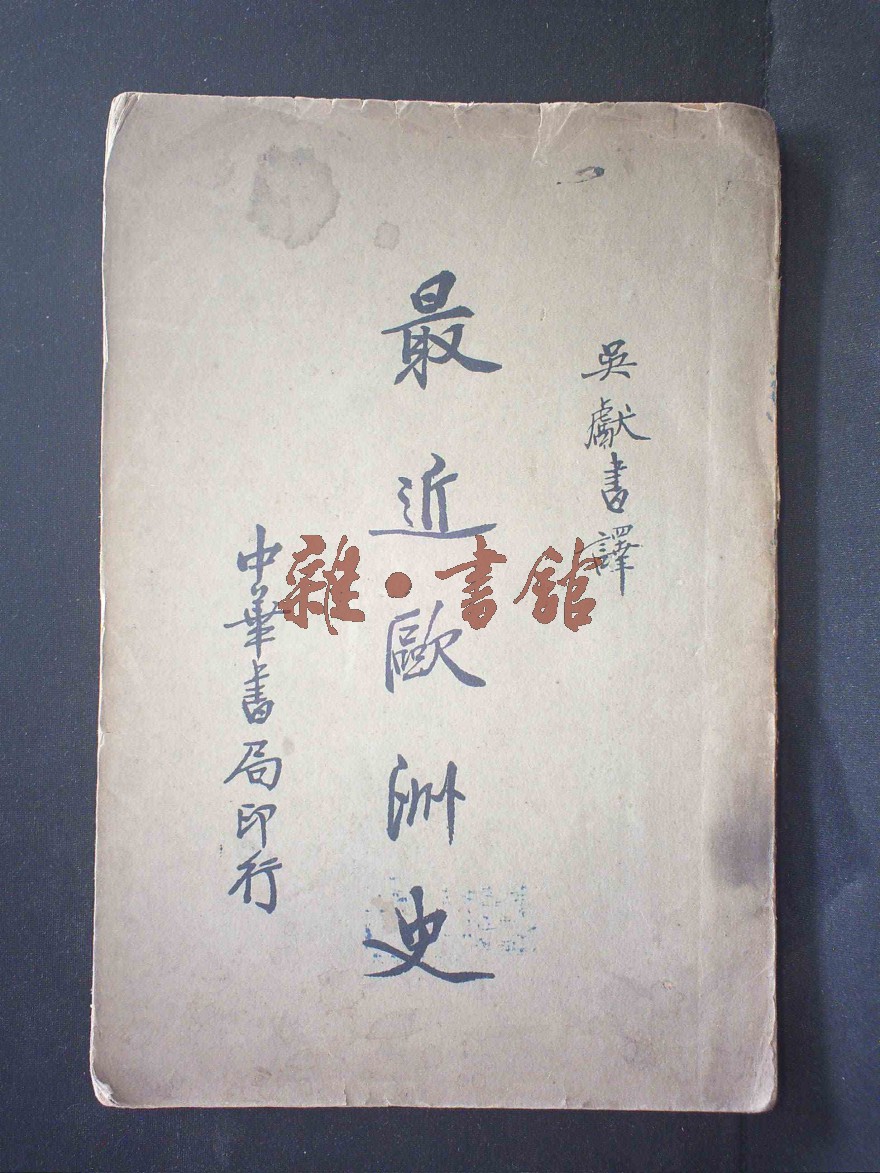 吳獻書譯
最近歐洲史
中華書局印行
雜·書館